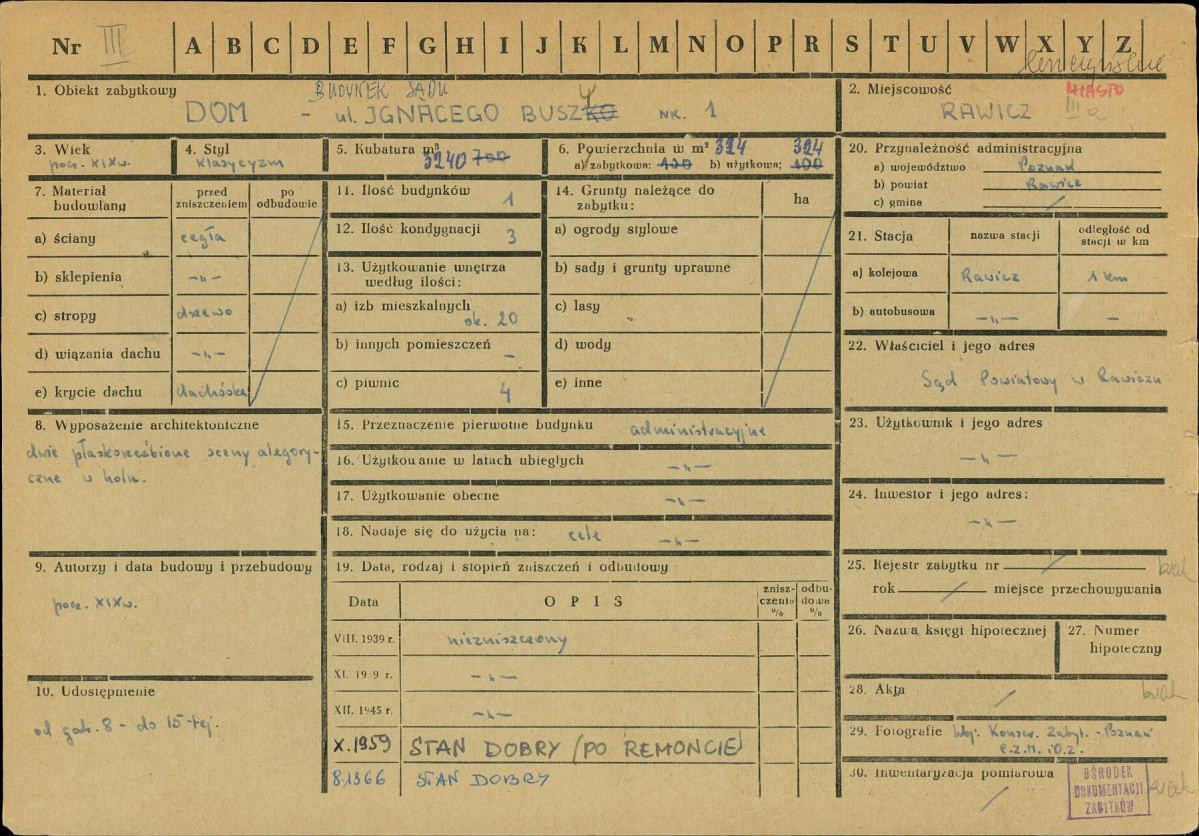 Nr III A B C D E F G H I J K L M N O P R S T U V W X Y Z
1. Obiekt zabytkowy
BUDYNEK SĄDU
DOM - ul. IGNACEGO BUSZKO NR. 1
2. Miejscowość
MIASTO
RAWICZ III
3. Wiek
pocz. XIXw.
4. Styl
klasycyzm
5. Kubatura m³
3240 700
6. Powierzchnia w m²
324 324
a) zabytkowa: 100 b) użytkowa: 100
7. Materiał budowlany
przed zniszczeniem
po odbudowie
a) ściany cegła
b) sklepienia -„-
c) stropy drzewo
d) wiązania dachu -„-
e) krycie dachu dachówka
8. Wyposażenie architektoniczne
dwie płaskorzeźbione sceny alegory-
czne w holu.
9. Autorzy i data budowy i przebudowy
pocz. XIXw.
10. Udostępnienie
od godz. 8 - do 15-tej.
11. Ilość budynków 1
12. Ilość kondygnacji 3
13. Użytkowanie wnętrza
według ilości:
a) izb mieszkalnych
ok. 20
b) innych pomieszczeń -
c) piwnic 4
14. Grunty należące do
zabytku: ha
a) ogrody stylowe
b) sady i grunty uprawne
c) lasy
d) wody
e) inne
15. Przeznaczenie pierwotne budynku administracyjne
16. Użytkowanie w latach ubiegłych -„-
17. Użytkowanie obecne -„-
18. Nadaje się do użycia na: cele -„-
19. Data, rodzaj i stopień zniszczeń i odbudowy
Data OPIS znisz-czenia % odbu-dowa %
VIII. 1939 r. niezniszczony
XI. 19 9 r. -„-
XII. 1945 r. -„-
X.1959 STAN DOBRY (PO REMONCIE)
8.1966 STAN DOBRY
20. Przynależność administracyjna
a) województwo Poznań
b) powiat Rawicz
c) gmina /
21. Stacja nazwa stacji odległość od stacji w km
a) kolejowa Rawicz 1 km
b) autobusowa -„- -
22. Właściciel i jego adres
Sąd Powiatowy w Rawiczu
23. Użytkownik i jego adres
-„-
24. Inwestor i jego adres:
-„-
25. Rejestr zabytku nr / brak
rok / miejsce przechowywania
26. Nazwa księgi hipotecznej
27. Numer hipoteczny
28. Akta / brak
29. Fotografie Woj. Konserw. Zabyt. - Poznań
30. Inwentaryzacja pomiarowa / brak
OŚRODEK
DOKUMENTACJI
ZABYTKÓW